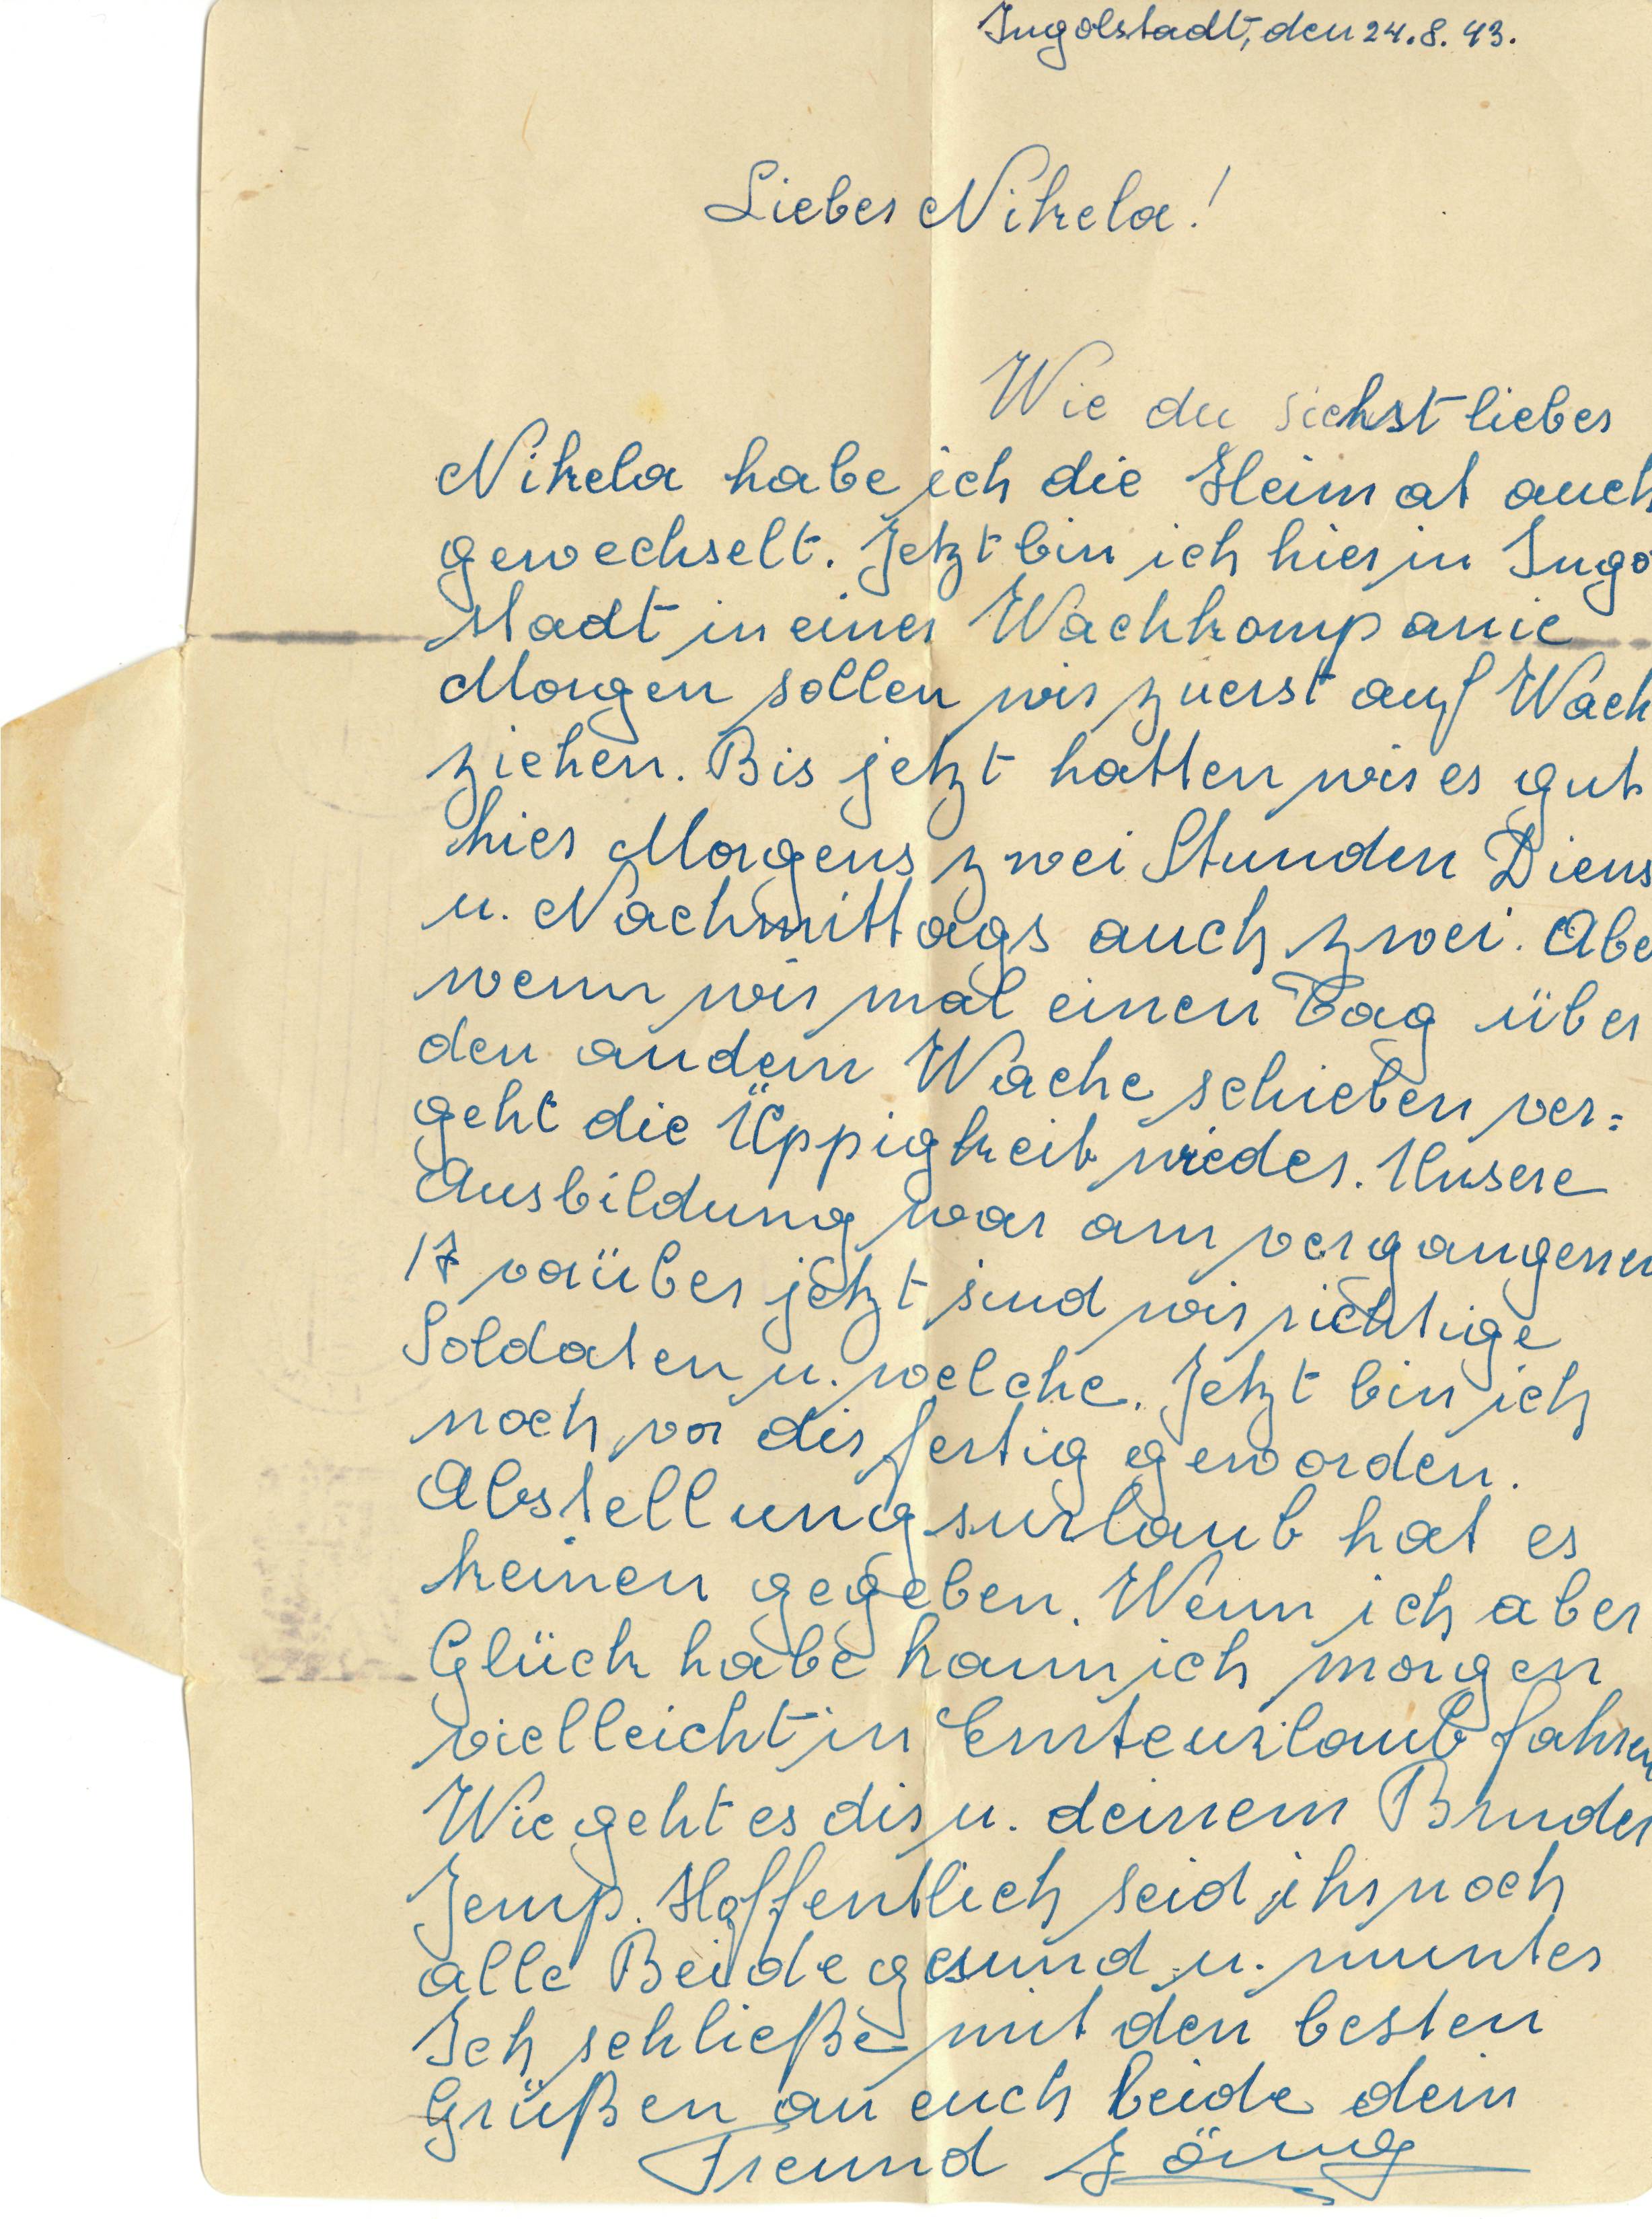 Ingolstadt, den 24.8.43.
Lieber Nikela!
Wie du siehst lieber
Nikela habe ich die Heimat auch
gewechselt. Jetzt bin ich hier in Ingo
stadt in einer Wachkompanie
Morgen sollen wir zuerst auf Wach
ziehen. Bis jetzt hatten wir es gut
hier Morgens zwei Stunden Diens
u. Nachmittags auch zwei. Abe
wenn wir mal einen Tag über
den andern Wache schieben ver=
geht die Üppigkeit wieder. Unsere
Ausbildung war am vergangenen
17 vorüber jetzt sind wir richtige
Soldaten u. welche. Jetzt bin ich
noch vor dir fertig geworden.
Abstellungsurlaub hat es
keinen gegeben. Wenn ich aber
Glück habe kann ich morgen
vielleicht in Ernteurlaub fahren
Wie geht es dir u. deinem Bruder
Jemp. Hoffentlich seid ihr noch
alle Beide gesund u. munter
Ich schließe mit den besten
Grüßen an euch beide dein
Freund